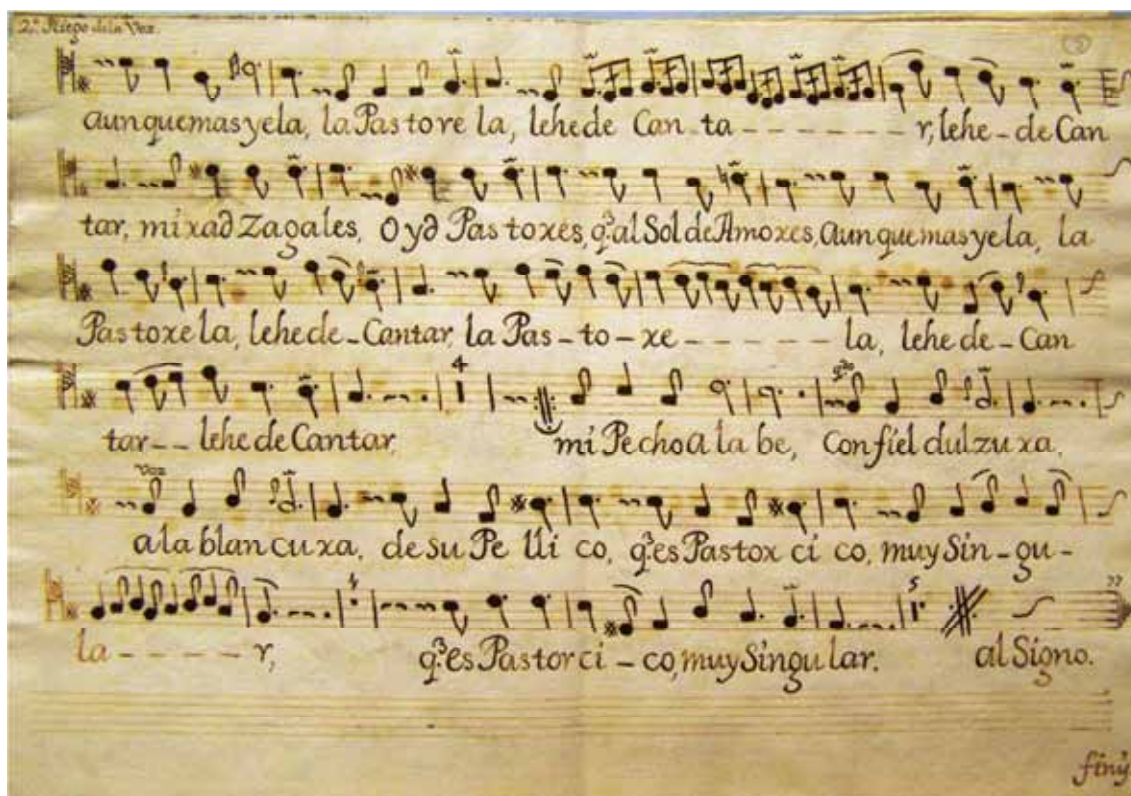 2º Pliego de la Voz.
aunque mas yela, la Pastorela, lehe de Can-ta - - - - - - - r, lehe-de Can
tar, mirad Zagales, Oyd Pastores, q.e al Sol de Amores, Aunque mas yela, la
Pastorela, lehe de-Cantar, la Pas-to-re - - - - - la, lehe de-Can
4
tar-- lehe de Cantar. mi Pecho alabe, Con fiel dulzura,
Voz
a la blancura, de su Pellico, q.e es Pastorcico, muy Sin-gu-
5
la - - - - r, q.e es Pastorci-co, muy Singular. al Signo.
finis